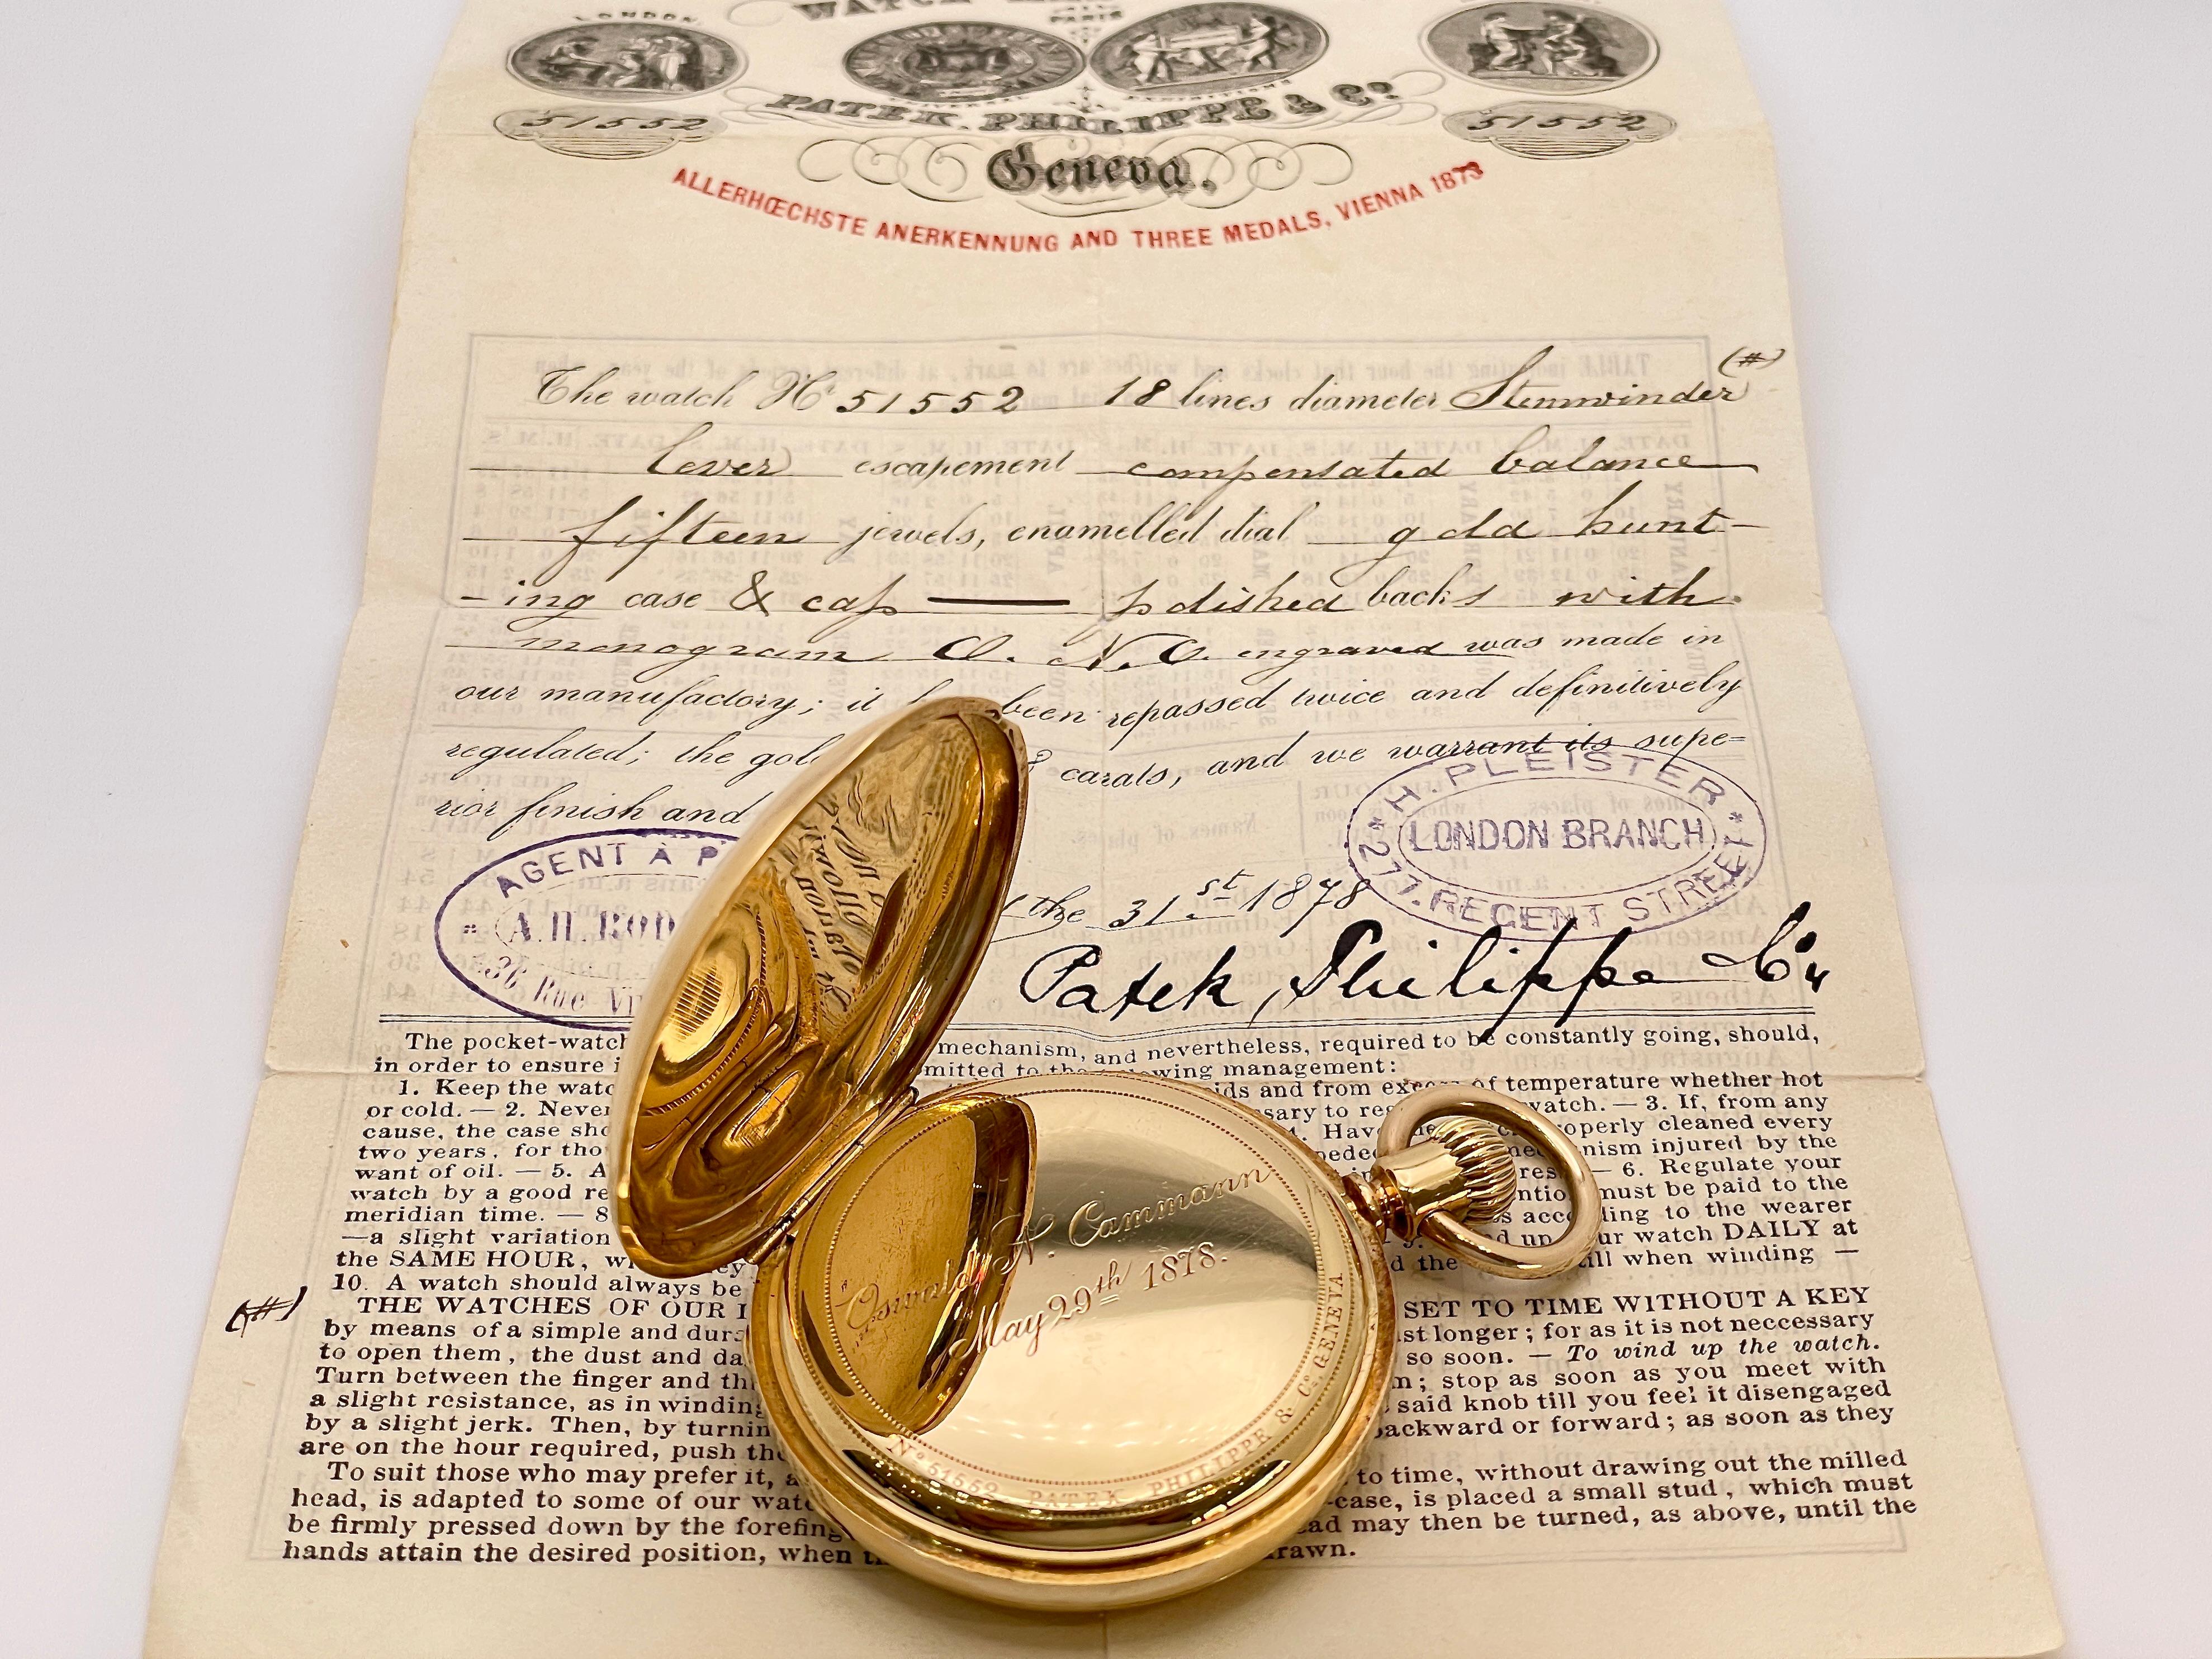 LONDON.
WATCH
PARIS
PATEK, PHILIPPE & Co
51552
51552
Geneva.
ALLERHŒCHSTE ANERKENNUNG AND THREE MEDALS, VIENNA 1873
(#)
The watch No 51552 18 lines diameter Stemwinder
lever escapement compensated balance
fifteen jewels, enamelled dial gold hunt-
-ing case & cap — polished backs with
monogram O. N. C. engraved was made in
our manufactory; it been repassed twice and definitively
regulated; the gol 8 carats, and we warrant its supe=
rior finish and
H. PLEISTER
LONDON BRANCH
277. REGENT STREET
AGENT À P
A. H. ROD
36 Rue
the 31.st 1878
Patek, Philippe & Co
The pocket-watch mechanism, and nevertheless, required to be constantly going, should,
in order to ensure i mitted to the following management:
1. Keep the watc ids and from excess of temperature whether hot
or cold. — 2. Never ssary to reg watch. — 3. If, from any
cause, the case sho 4. Have properly cleaned every
two years, for tho peded mechanism injured by the
want of oil. — 5. A — 6. Regulate your
watch by a good re ntion must be paid to the
meridian time. — 8 s according to the wearer
—a slight variation nd up your watch DAILY at
the SAME HOUR, w d the till when winding —
10. A watch should always be
(#)
THE WATCHES OF OUR SET TO TIME WITHOUT A KEY
by means of a simple and dura st longer; for as it is not neccessary
to open them, the dust and da so soon. — To wind up the watch.
Turn between the finger and th m; stop as soon as you meet with
a slight resistance, as in winding said knob till you feel it disengaged
by a slight jerk. Then, by turnin backward or forward; as soon as they
are on the hour required, push the
To suit those who may prefer it, a to time, without drawing out the milled
head, is adapted to some of our watc -case, is placed a small stud, which must
be firmly pressed down by the forefing ead may then be turned, as above, until the
hands attain the desired position, when drawn.
Oswald N. Cammann
May 29th 1878.
No 51552 PATEK PHILIPPE & Co. GENEVA